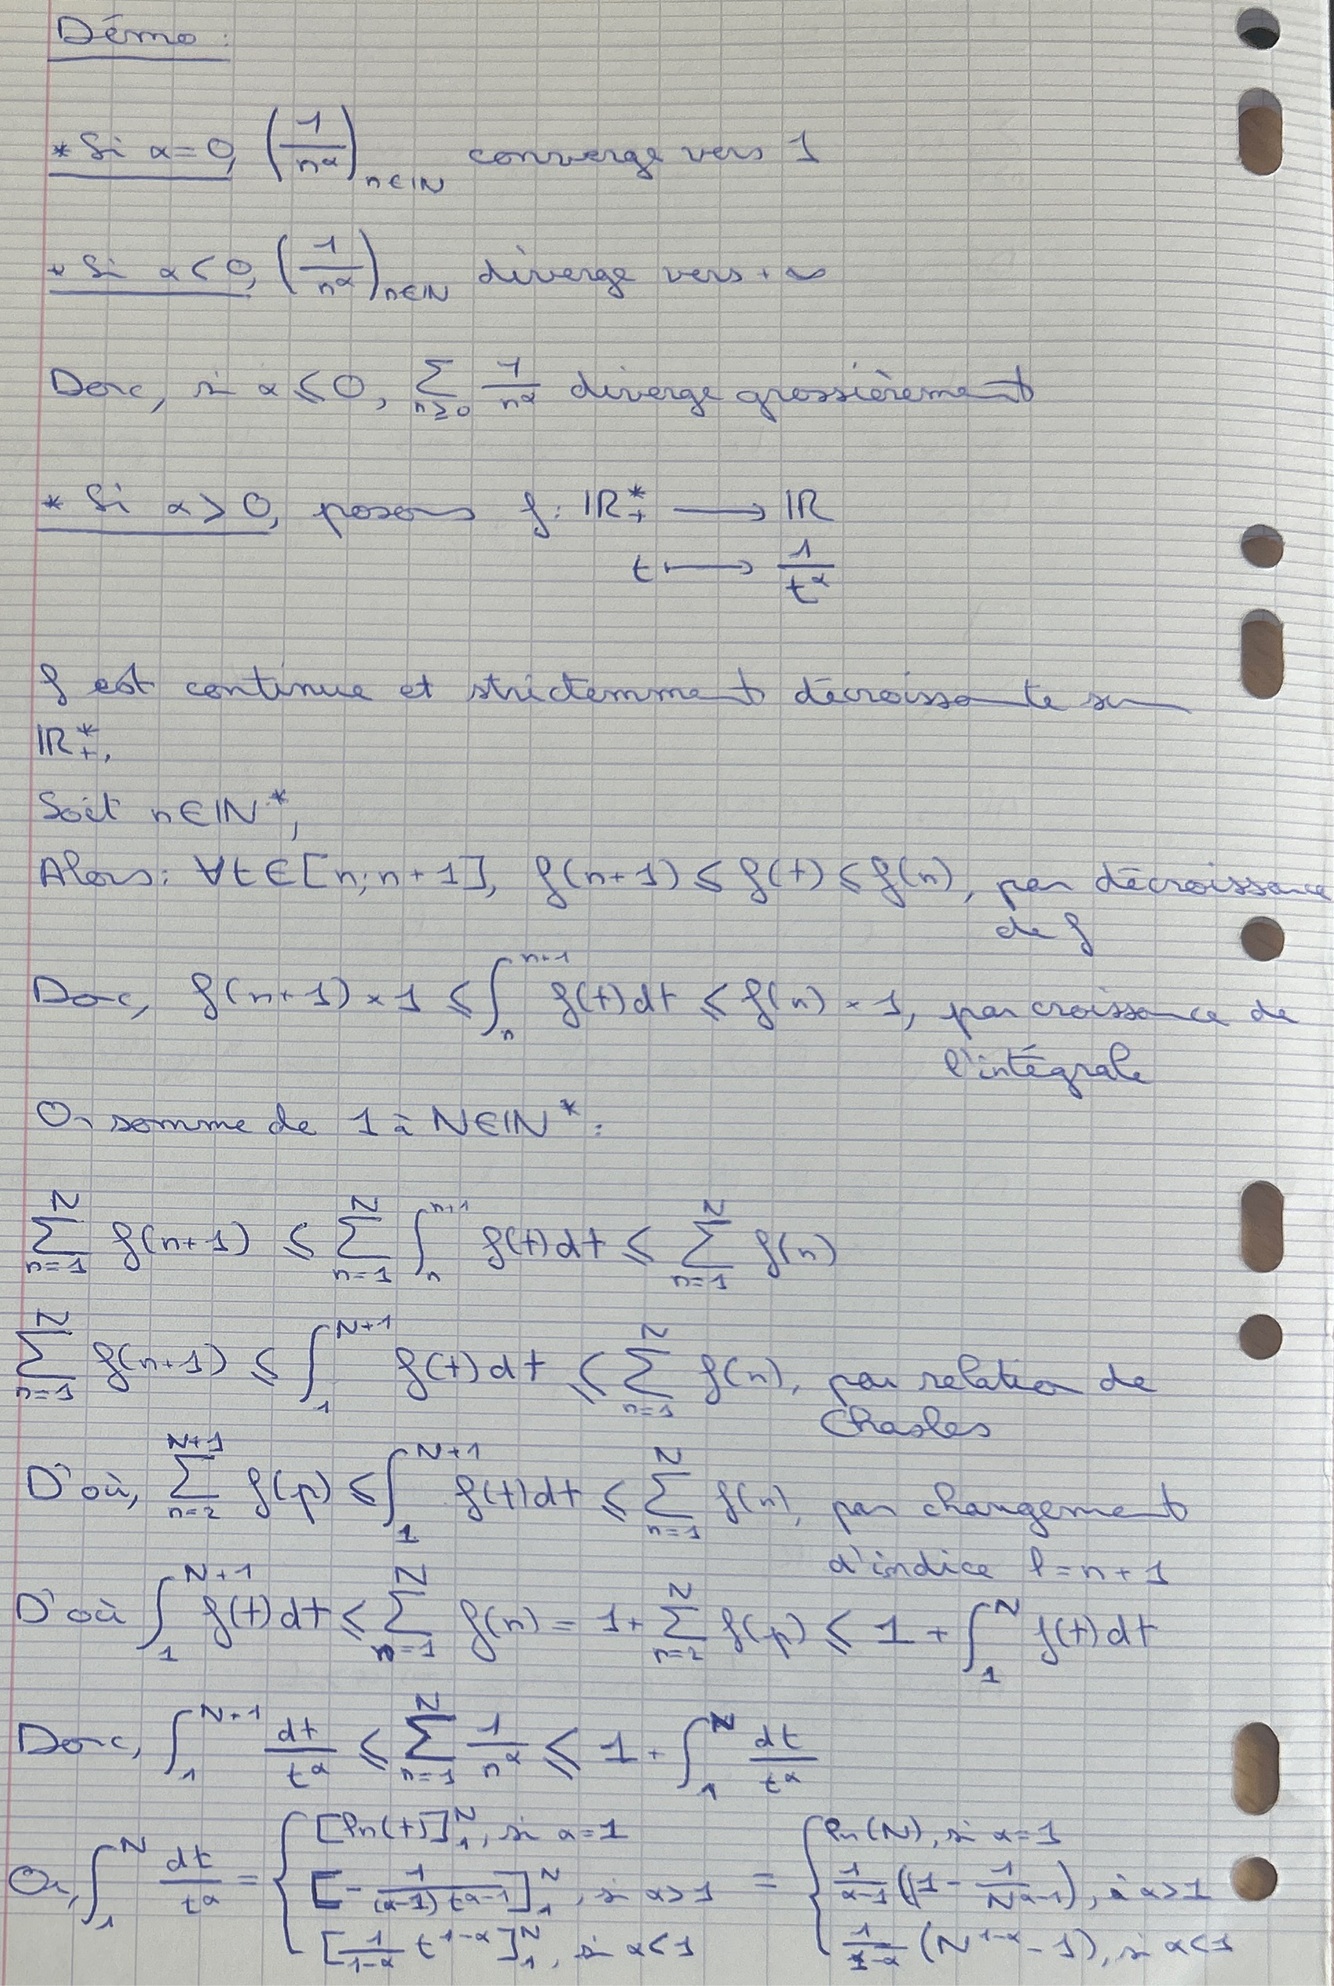 Démo :
* Si α = 0, (1/n^α)_{n∈ℕ} converge vers 1
* Si α < 0, (1/n^α)_{n∈ℕ} diverge vers +∞
Donc, si α ≤ 0, ∑_{n≥0} 1/n^α diverge grossièrement
* Si α > 0, posons f : ℝ₊* ⟶ ℝ
t ⟼ 1/t^α
f est continue et strictemment décroissante sur
ℝ₊*,
Soit n ∈ ℕ*,
Alors : ∀t ∈ [n; n+1], f(n+1) ≤ f(t) ≤ f(n), par décroissance
de f
Donc, f(n+1) × 1 ≤ ∫_n^{n+1} f(t)dt ≤ f(n) × 1, par croissance de
l'intégrale
On somme de 1 à N ∈ ℕ* :
∑_{n=1}^{N} f(n+1) ≤ ∑_{n=1}^{N} ∫_n^{n+1} f(t)dt ≤ ∑_{n=1}^{N} f(n)
∑_{n=1}^{N} f(n+1) ≤ ∫_1^{N+1} f(t)dt ≤ ∑_{n=1}^{N} f(n), par relation de
Chasles
D'où, ∑_{n=2}^{N+1} f(p) ≤ ∫_1^{N+1} f(t)dt ≤ ∑_{n=1}^{N} f(n), par changement
d'indice p = n+1
D'où ∫_1^{N+1} f(t)dt ≤ ∑_{n=1}^{N} f(n) = 1 + ∑_{n=2}^{N} f(p) ≤ 1 + ∫_1^N f(t)dt
Donc, ∫_1^{N+1} dt/t^α ≤ ∑_{n=1}^{N} 1/n^α ≤ 1 + ∫_1^N dt/t^α
Or, ∫_1^N dt/t^α = { [ln(t)]_1^N, si α = 1 = { ln(N), si α = 1
[-1/((α-1)t^{α-1})]_1^N, si α > 1 1/(α-1) (1 - 1/N^{α-1}), si α > 1
[1/(1-α) t^{1-α}]_1^N, si α < 1 1/(1-α) (N^{1-α} - 1), si α < 1